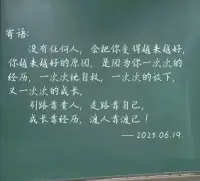 寄语:
没有任何人，会把你变得越来越好，
你越来越好的原因，是因为你一次次的
经历，一次次地自救，一次次的放下，
又一次次的成长。
引路靠贵人，走路靠自己，
成长靠经历，渡人靠渡己！
——2025.06.19.